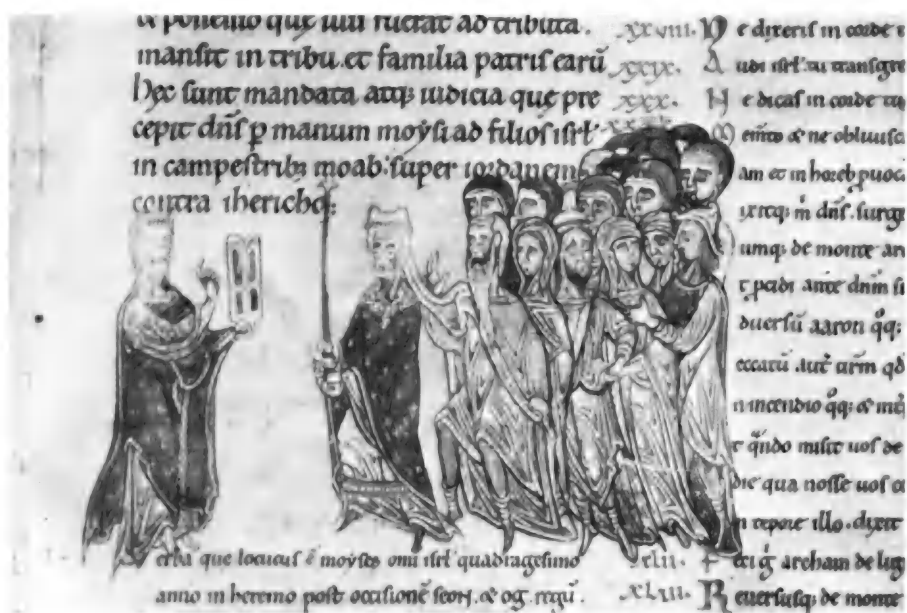 mansit in tribu et familia patris earū
hec sunt mandata atq; iudicia que pre
cepit dn̄s p manum moysi ad filios isrl
in campestrib; moab. super iordanem
contra ihericho;
erba que locutus ē moyses omi isrl quadragesimo
anno in heremo post occisionē seon. & og. regū.
xxviii. N e dixeris in corde
xxix. A udi isrl. tu transgre
xxx. N e dicas in corde tu
M em̄to & ne obliuisca
am et in horeb puoca
ixitq; m dn̄s. surge
umq; de monte
pcidi ante dn̄m si
duersū aaron qq;
eccatū aut̄
n incendio qq; &
qn̄do misit uos de
die qua nosse uos
n tepore illo. dixit
xlii. archam de lig
xliii. R euersusq; de monte